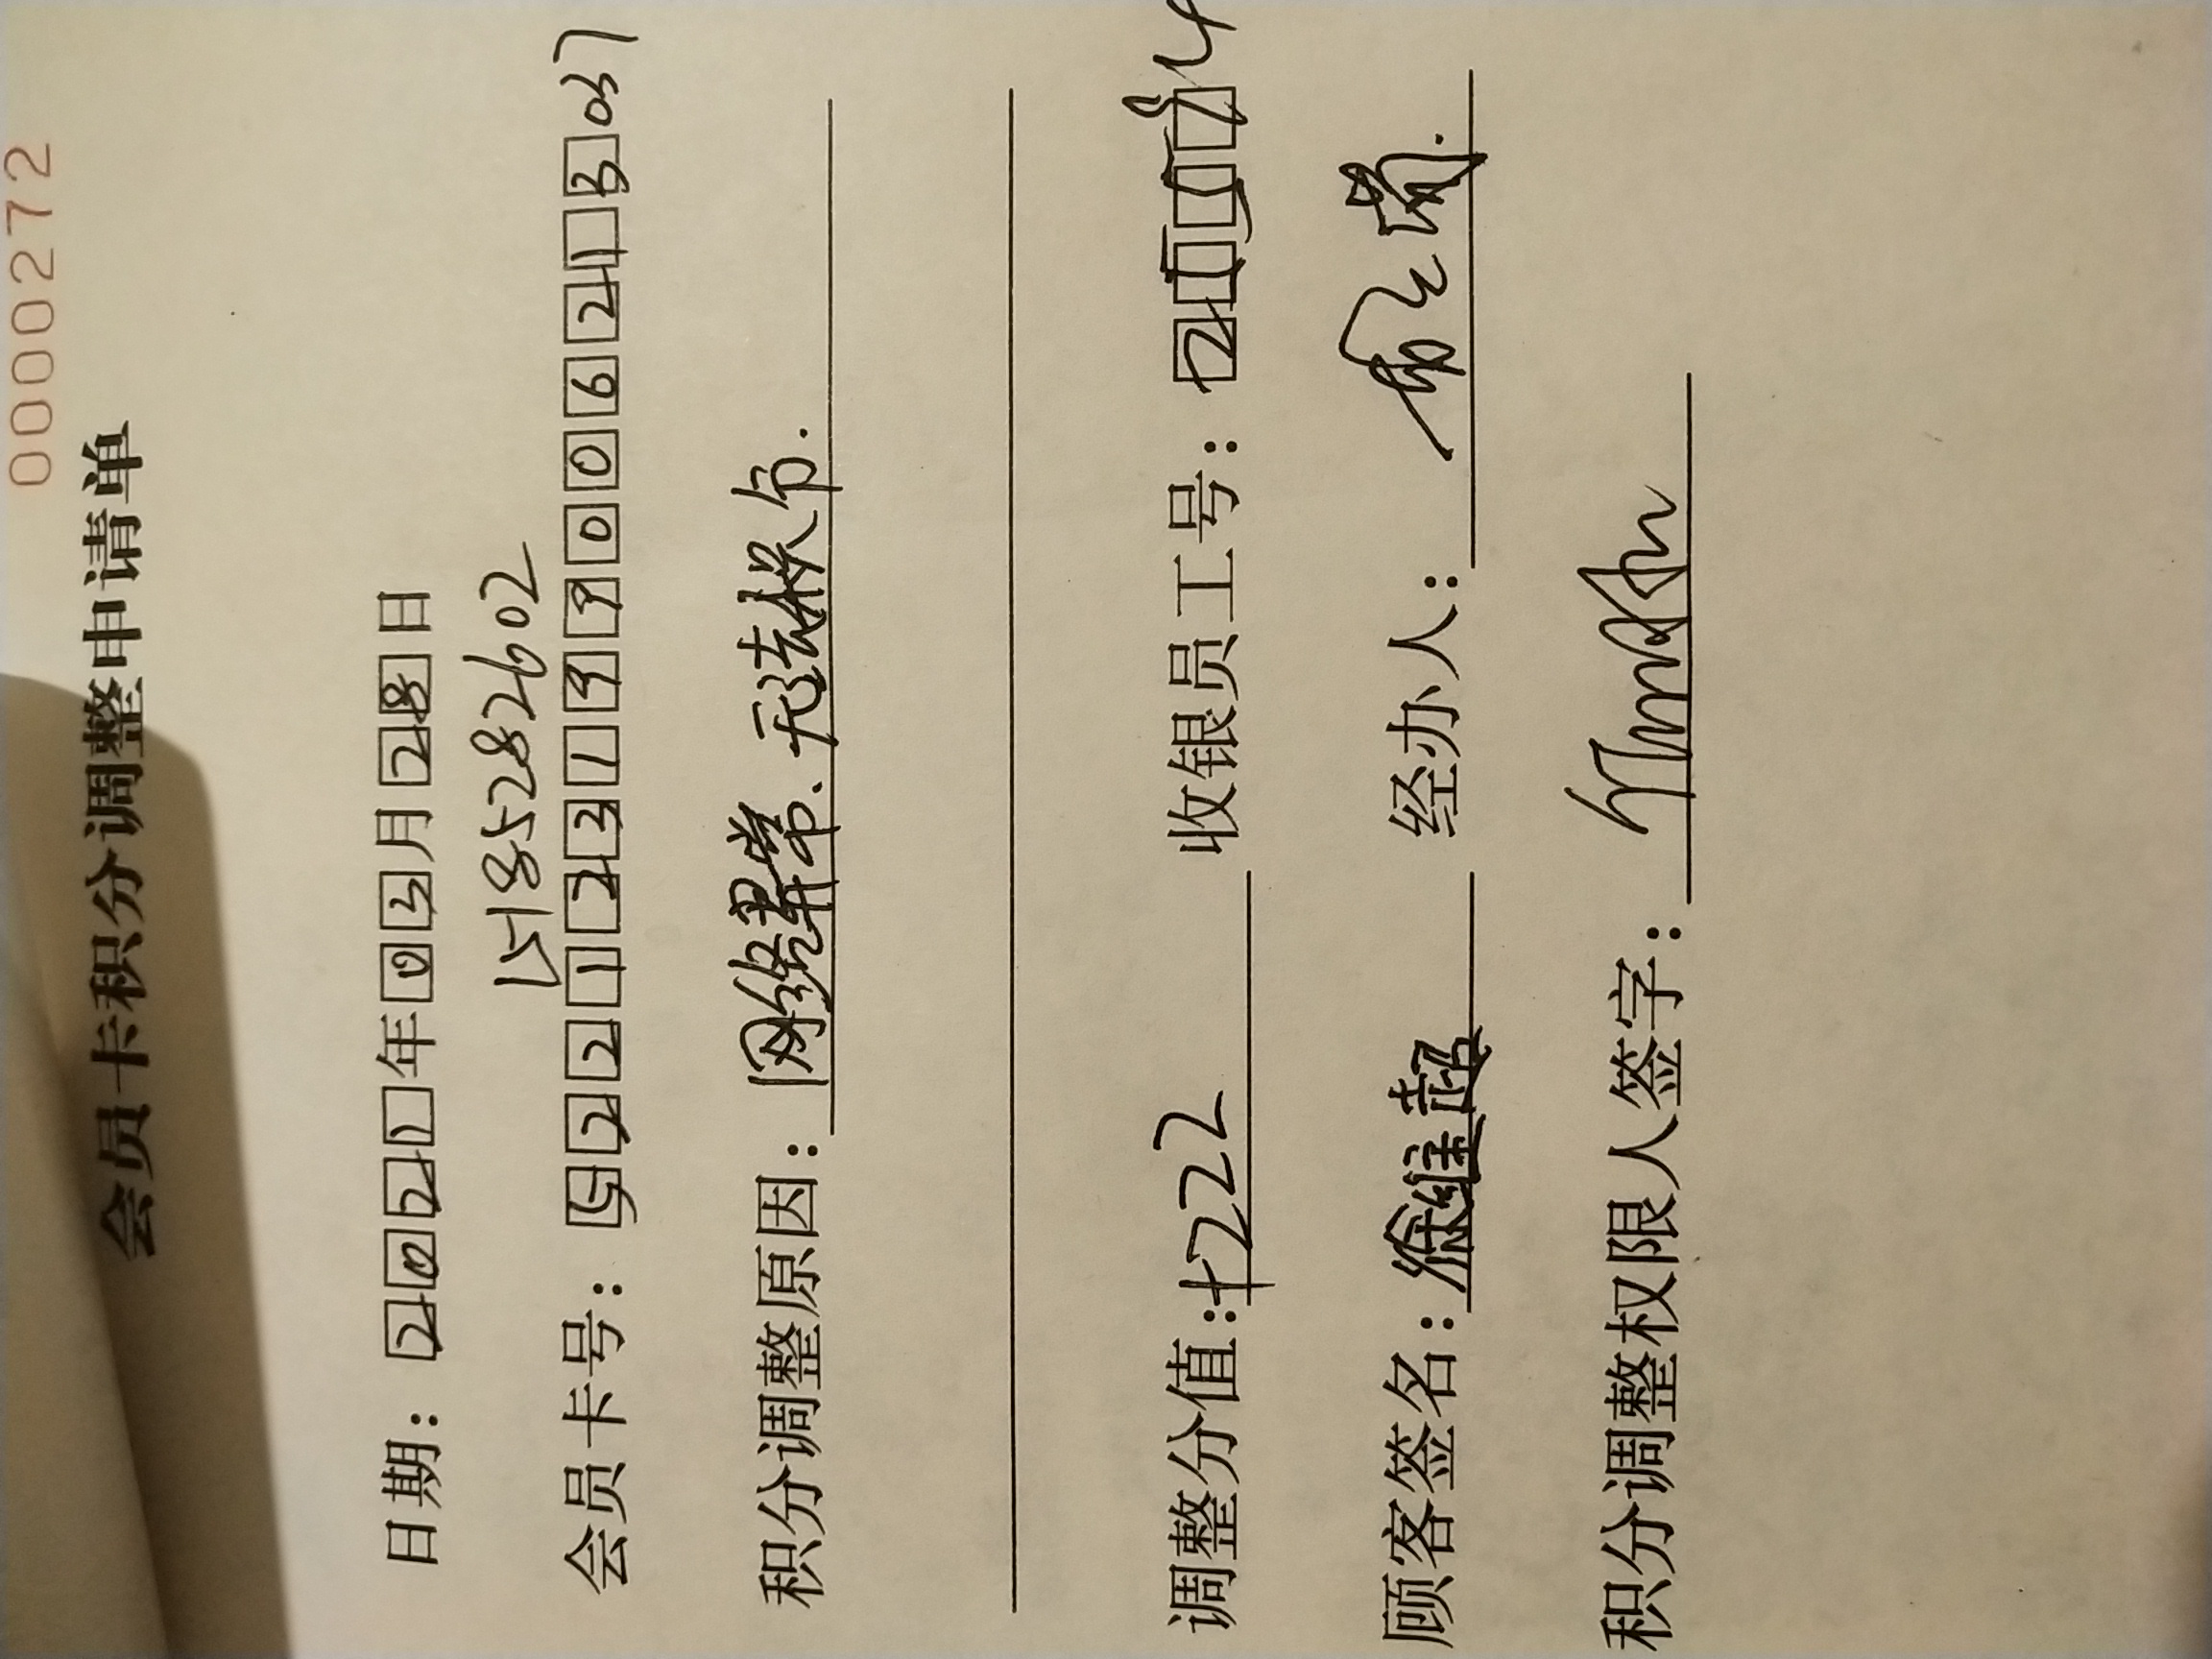 0000272
会员卡积分调整申请单
日期：2021年03月28日
15185282602
会员卡号：522123199006213037
积分调整原因：网络异常、无法积分.
调整分值：+222 收银员工号：
顾客签名：徐继超 经办人：
积分调整权限人签字：